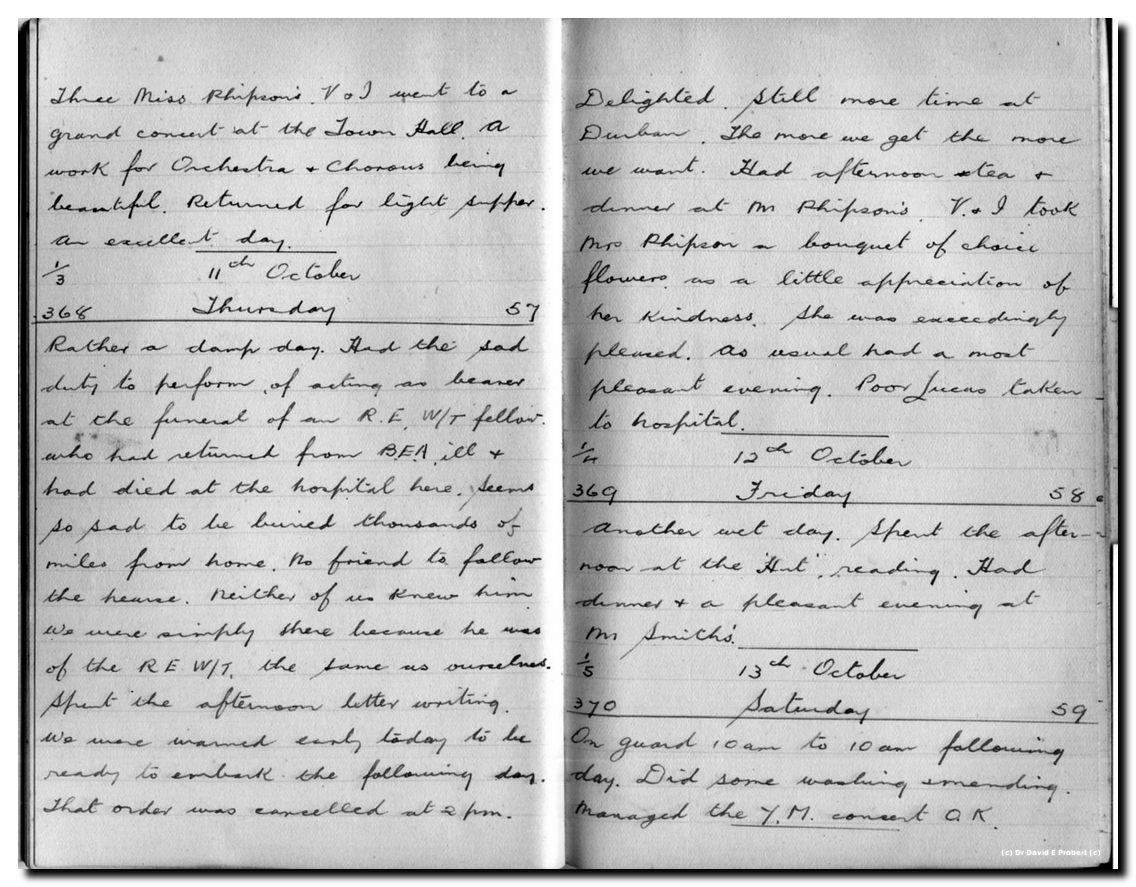 Three Miss Phipson's. V & I went to a
grand concert at the Town Hall. A
work for Orchestra & Chorous being
beautiful. Returned for light supper.
An excellent day.
1/3 11th October
368 Thursday 57
Rather a damp day. Had the sad
duty to perform, of acting as bearer
at the funeral of an R.E. W/T fellow.
who had returned from B.E.A. ill &
had died at the hospital here. Seems
so sad to be buried thousands of
miles from home. No friend to follow
the hearse. Neither of us knew him
We were simply there because he was
of the R E W/T. the same as ourselves.
Spent the afternoon letter writing.
We were warned early today to be
ready to embark the following day.
That order was cancelled at 2 pm.
Delighted. Still more time at
Durban. The more we get the more
we want. Had afternoon tea &
dinner at Mr Phipson's. V. & I took
Mrs Phipson a bouquet of choice
flowers, as a little appreciation of
her kindness. She was exceedingly
pleased. As usual had a most
pleasant evening. Poor Lucas taken
to hospital.
1/4 12th October
369 Friday 58
Another wet day. Spent the after-
noon at the 'Hut', reading. Had
dinner & a pleasant evening at
Mr Smith's.
1/5 13th October
370 Saturday 59
On guard 10 am to 10 am following
day. Did some washing & mending.
Managed the Y.M. concert O.K.
(c) Dr David E Probert (c)